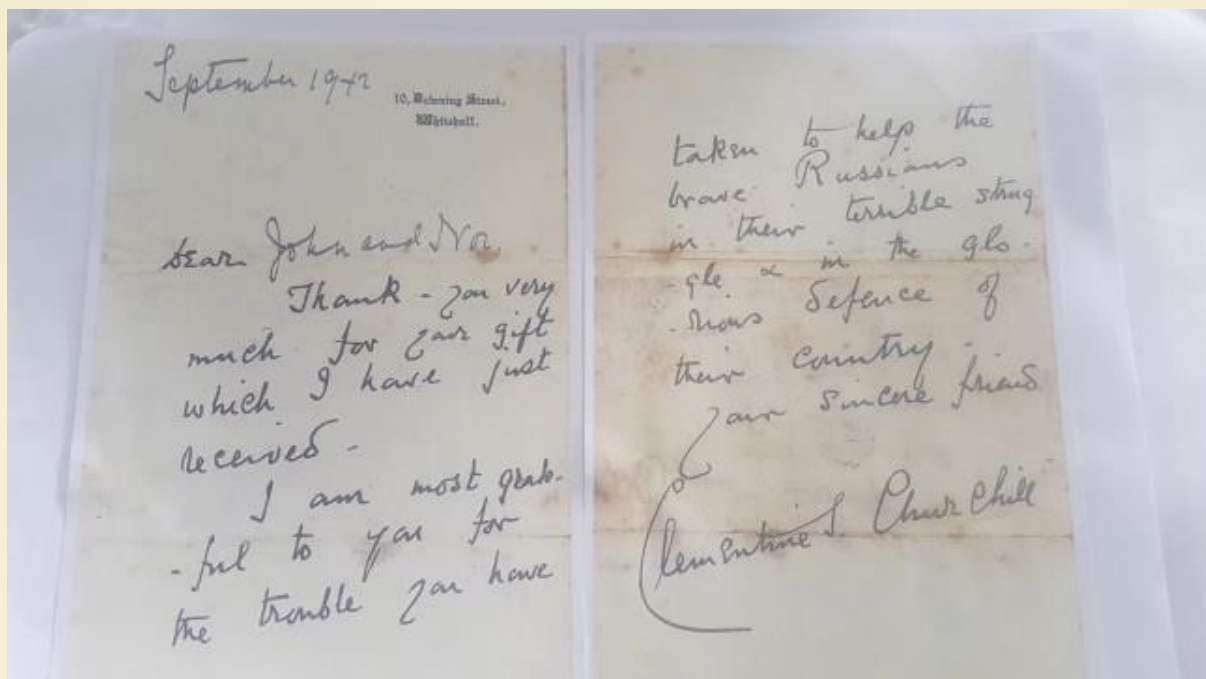 September 1942
10, Downing Street,
Whitehall.
Dear John and
Thank-you very
much for your gift
which I have just
received -
I am most grate-
-ful to you for
the trouble you have
taken to help the
brave Russians
in their terrible strug
-gle & in the glo-
-rious defence of
their country -
Your sincere friend
Clementine S. Churchill